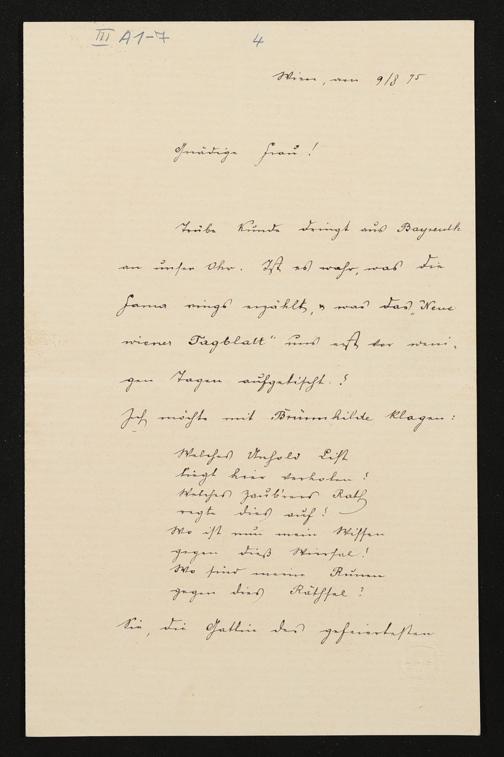 III A1-7
4
Wien, am 9/8 95
Gnädige Frau!
Trübe Kunde dringt aus Bayreuth
an unser Ohr. Ist es wahr, was die
Fama rings erzählt, & was das „Neue
wiener Tagblatt" uns erst vor weni-
gen Tagen aufgetischt?
Ich möchte mit Brünnhilde klagen:
Welches Unhold List
liegt hier verholen?
Welches Zaub'rers Rath
regte dies auf?
Wo ist nun mein Wissen
gegen dieß Wirrsal?
Wo sind meine Runen
gegen dies Räthsel?
Sie, die Gattin des gefeiertesten